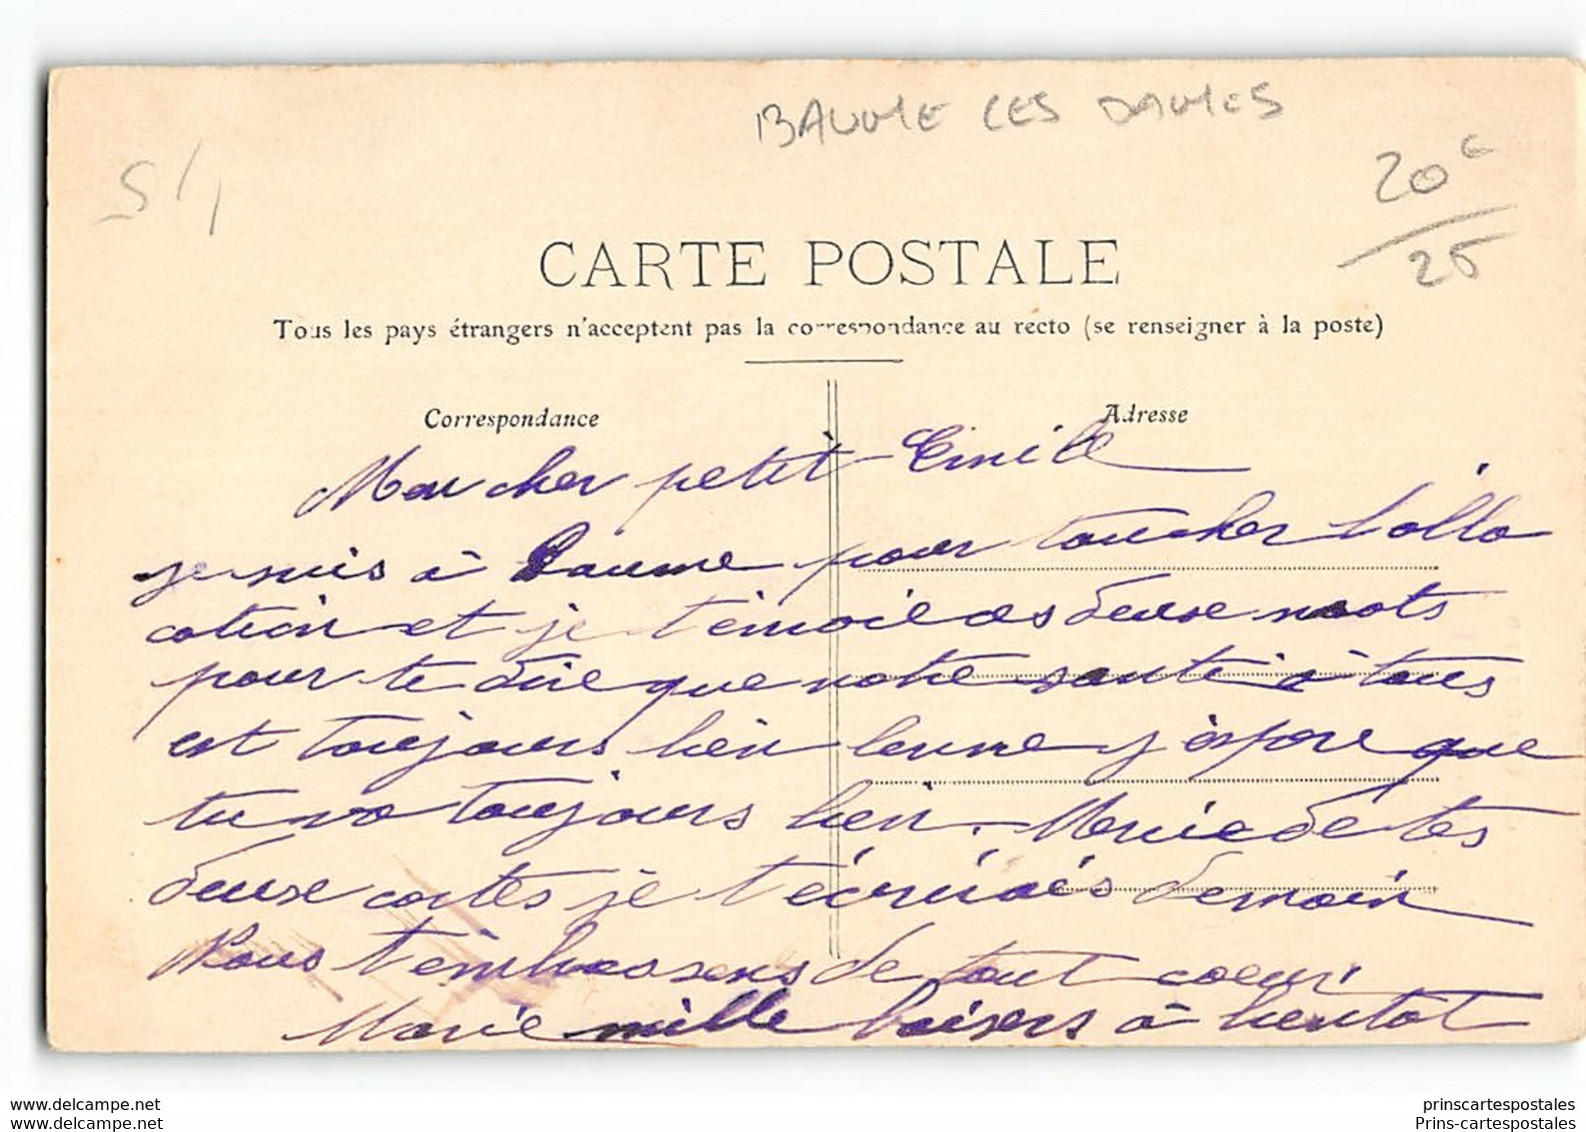 BAUME LES DAMES
S/1
20€
25
CARTE POSTALE
Tous les pays étrangers n'acceptent pas la correspondance au recto (se renseigner à la poste)
Correspondance
Adresse
Mon cher petit Emile
je suis à Baume pour toucher l'allo
cation et je t'envoie ces deux mots
pour te dire que notre santé à tous
est toujours bien bonne j'éspère que
tu va toujours bien. Mercie de tes
deuxe cartes je t'écrirais demain
Nous t'embrassens de tout coeur
Marie mille baisers à bientot
www.delcampe.net
Prins-cartespostales.com
prinscartespostales
Prins-cartespostales